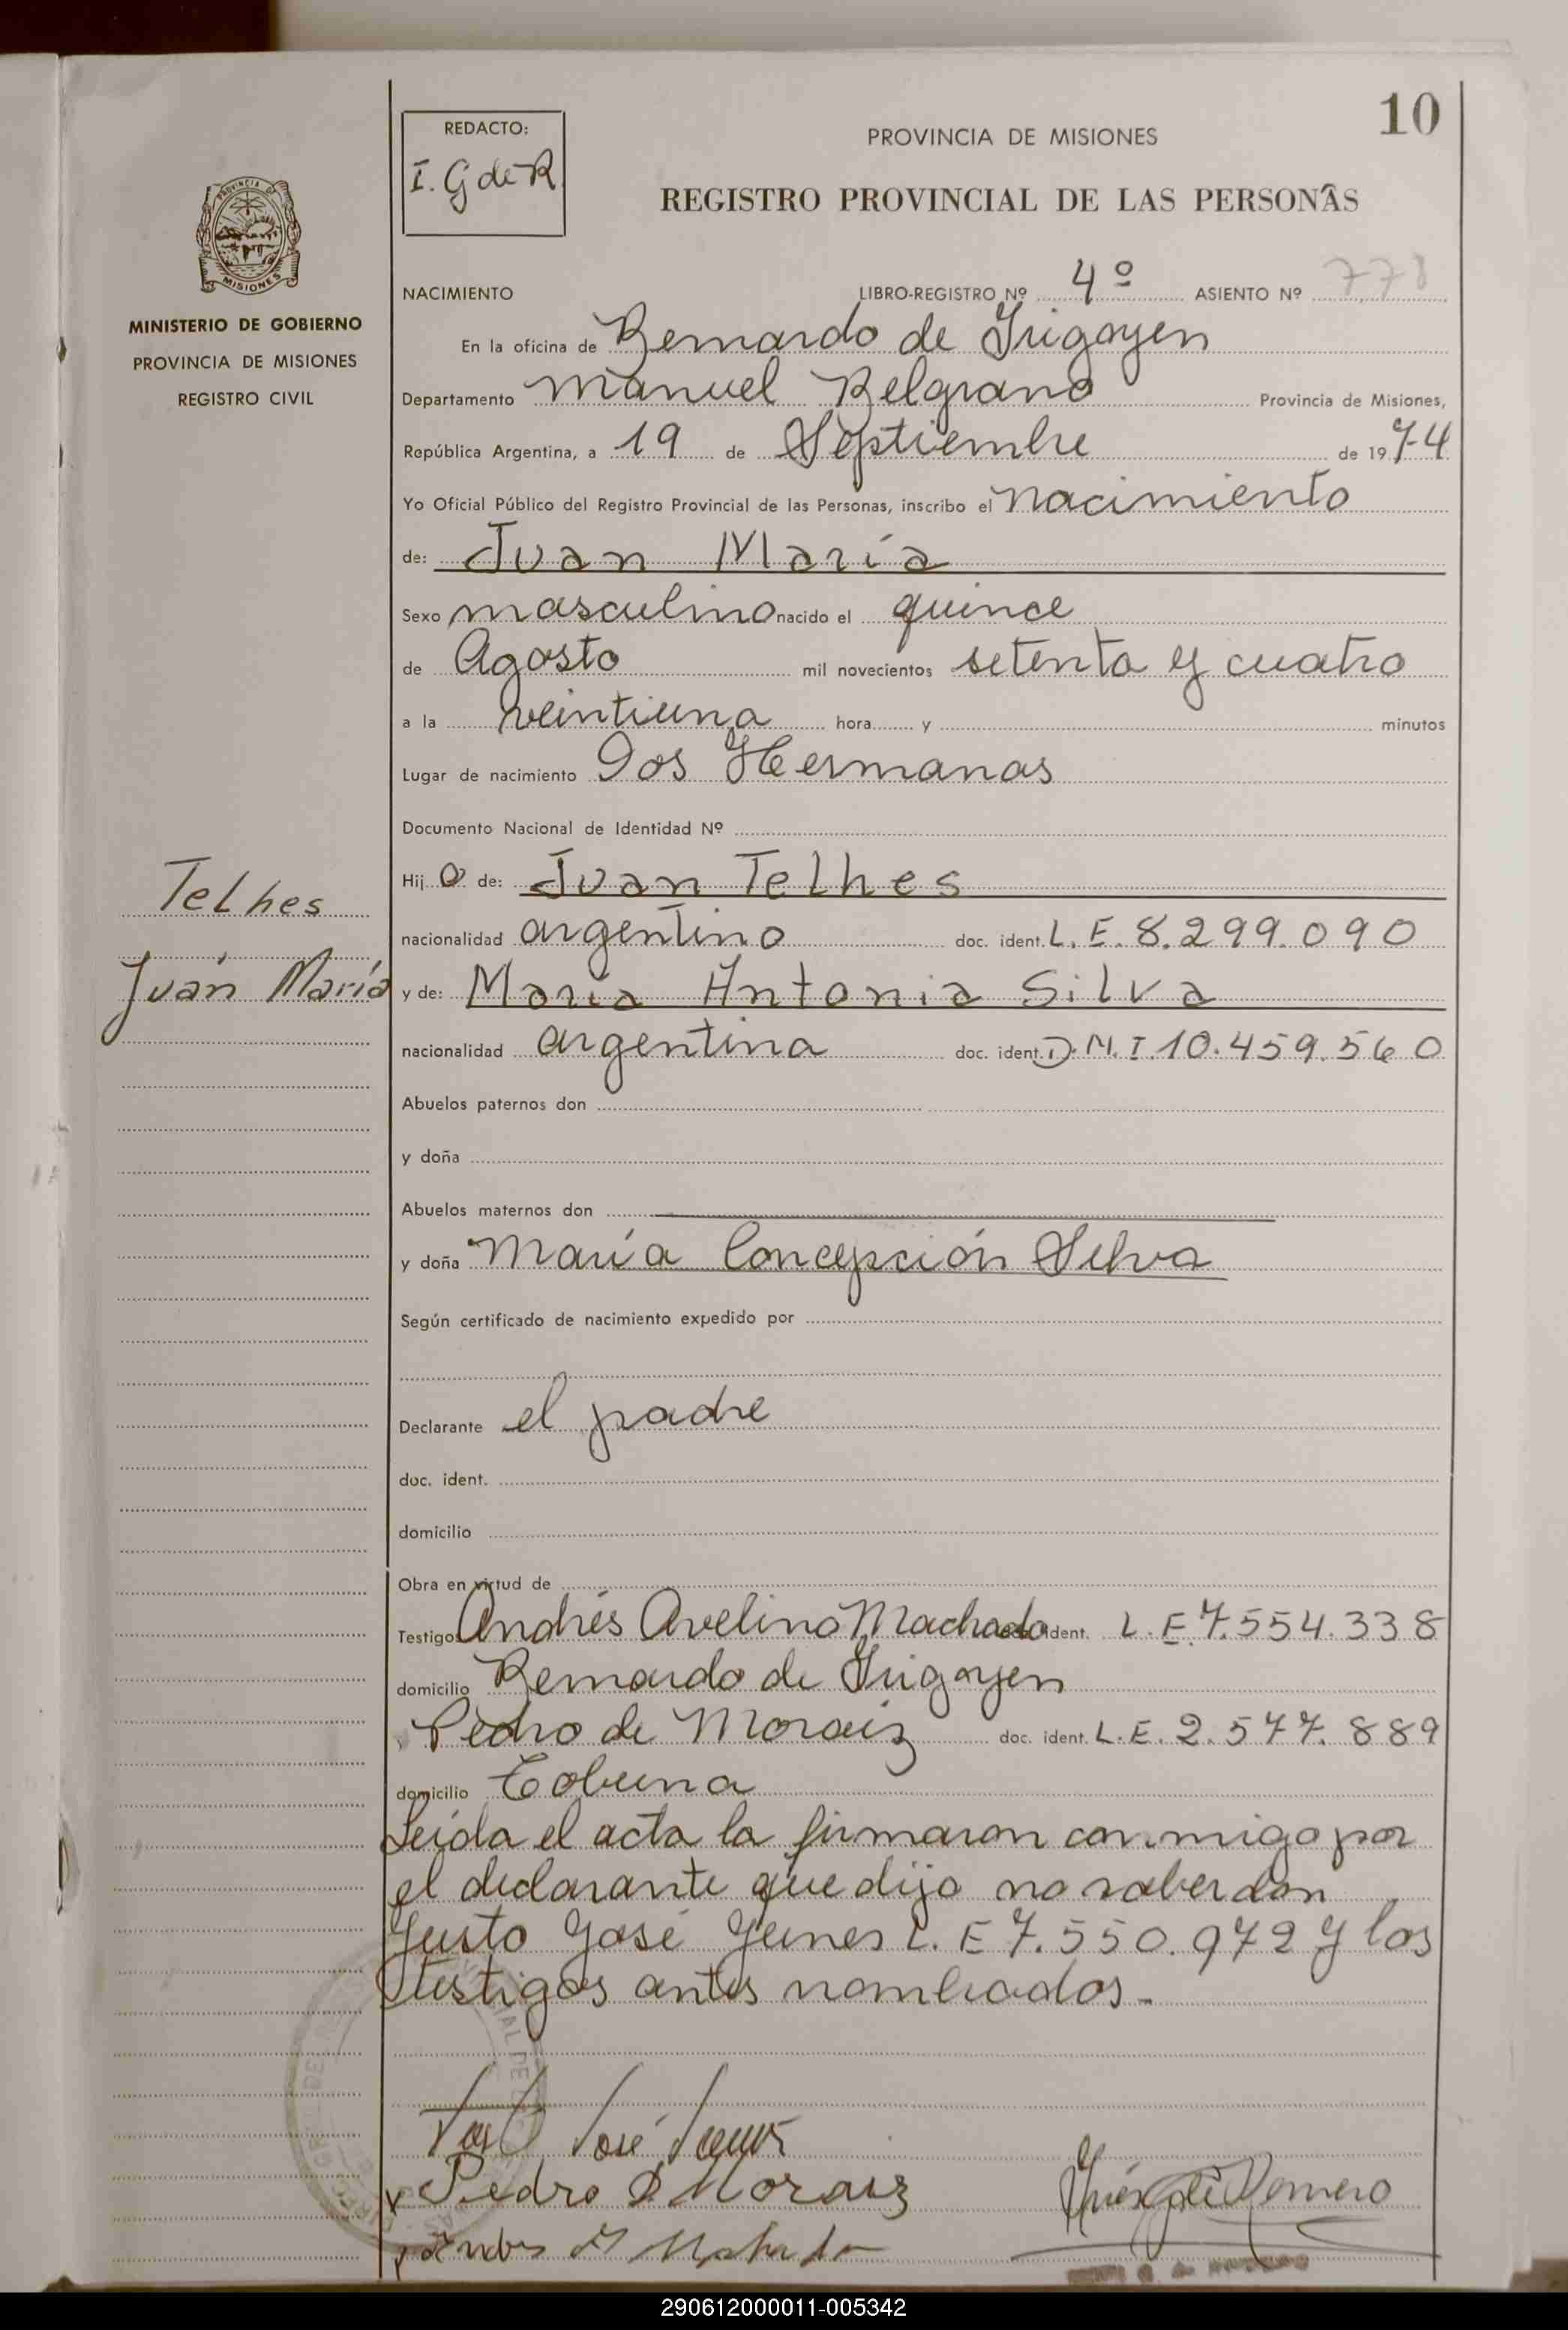 10
REDACTO:
I. G de R
PROVINCIA DE MISIONES
REGISTRO PROVINCIAL DE LAS PERSONAS
MISIONES
MINISTERIO DE GOBIERNO
PROVINCIA DE MISIONES
REGISTRO CIVIL
NACIMIENTO LIBRO-REGISTRO Nº 4º ASIENTO Nº 778
En la oficina de Bernardo de Irigoyen
Departamento Manuel Belgrano Provincia de Misiones,
República Argentina, a 19 de Septiembre de 1974
Yo Oficial Público del Registro Provincial de las Personas, inscribo el nacimiento
de: Juan María
Sexo masculino nacido el quince
de Agosto mil novecientos setenta y cuatro
a la veintiuna hora y minutos
Lugar de nacimiento Dos Hermanas
Documento Nacional de Identidad Nº
Telhes
Juan María
Hijo de: Juan Telhes
nacionalidad argentino doc. ident. L. E. 8.299.090
y de: María Antonia Silva
nacionalidad argentina doc. ident. D.N.I. 10.459.560
Abuelos paternos don
y doña
Abuelos maternos don
y doña María Concepción Silva
Según certificado de nacimiento expedido por
Declarante el padre
doc. ident.
domicilio
Obra en virtud de
Testigos Andrés Avelino Machado ident. L. E. 7.554.338
domicilio Bernardo de Irigoyen
Pedro de Moraiz doc. ident. L. E. 2.577.889
domicilio Cobuna
Leída el acta la firmaron conmigo por
el declarante que dijo no saber don
Justo José Junes L. E 7.550.972 y los
testigos antes nombrados.-
Justo José
Pedro D Moraiz
Romero
290612000011-005342